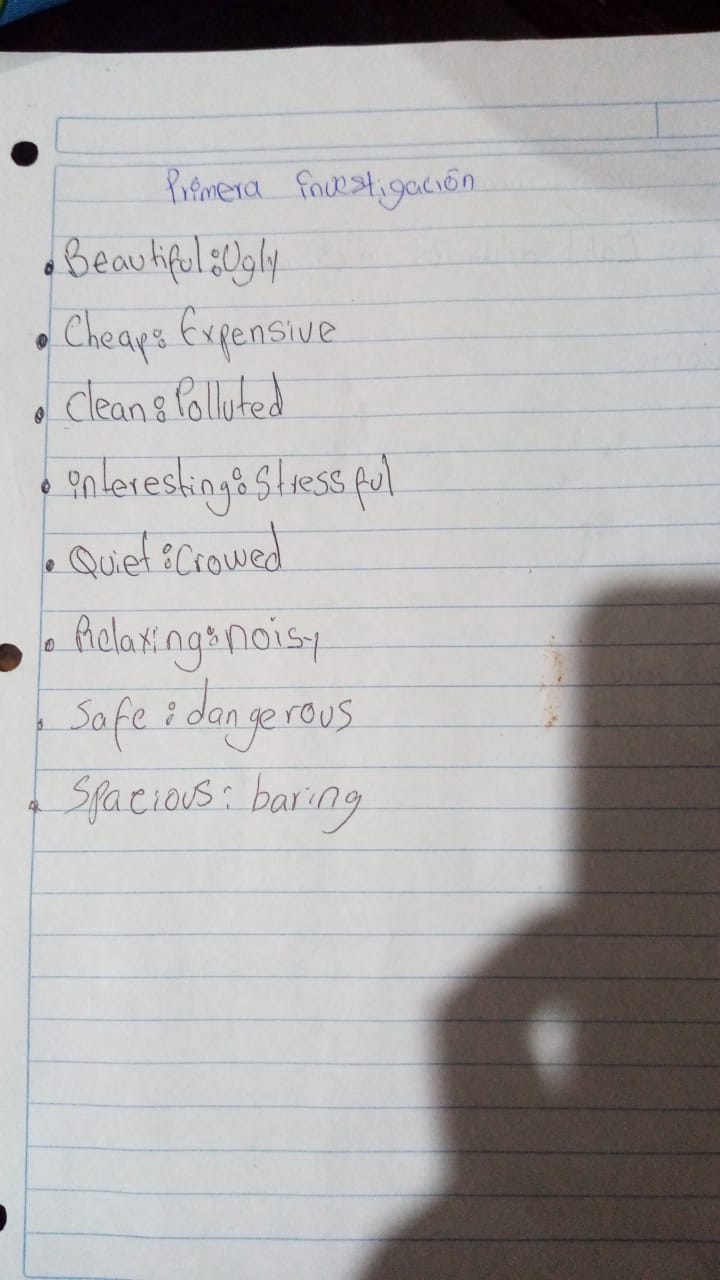 Primera Investigación
• Beautiful: Ugly
• Cheap: Expensive
• Clean: Polluted
• interesting: Stressful
• Quiet: Crowed
• Relaxing: noisy
• Safe: dangerous
• Spacious: baring